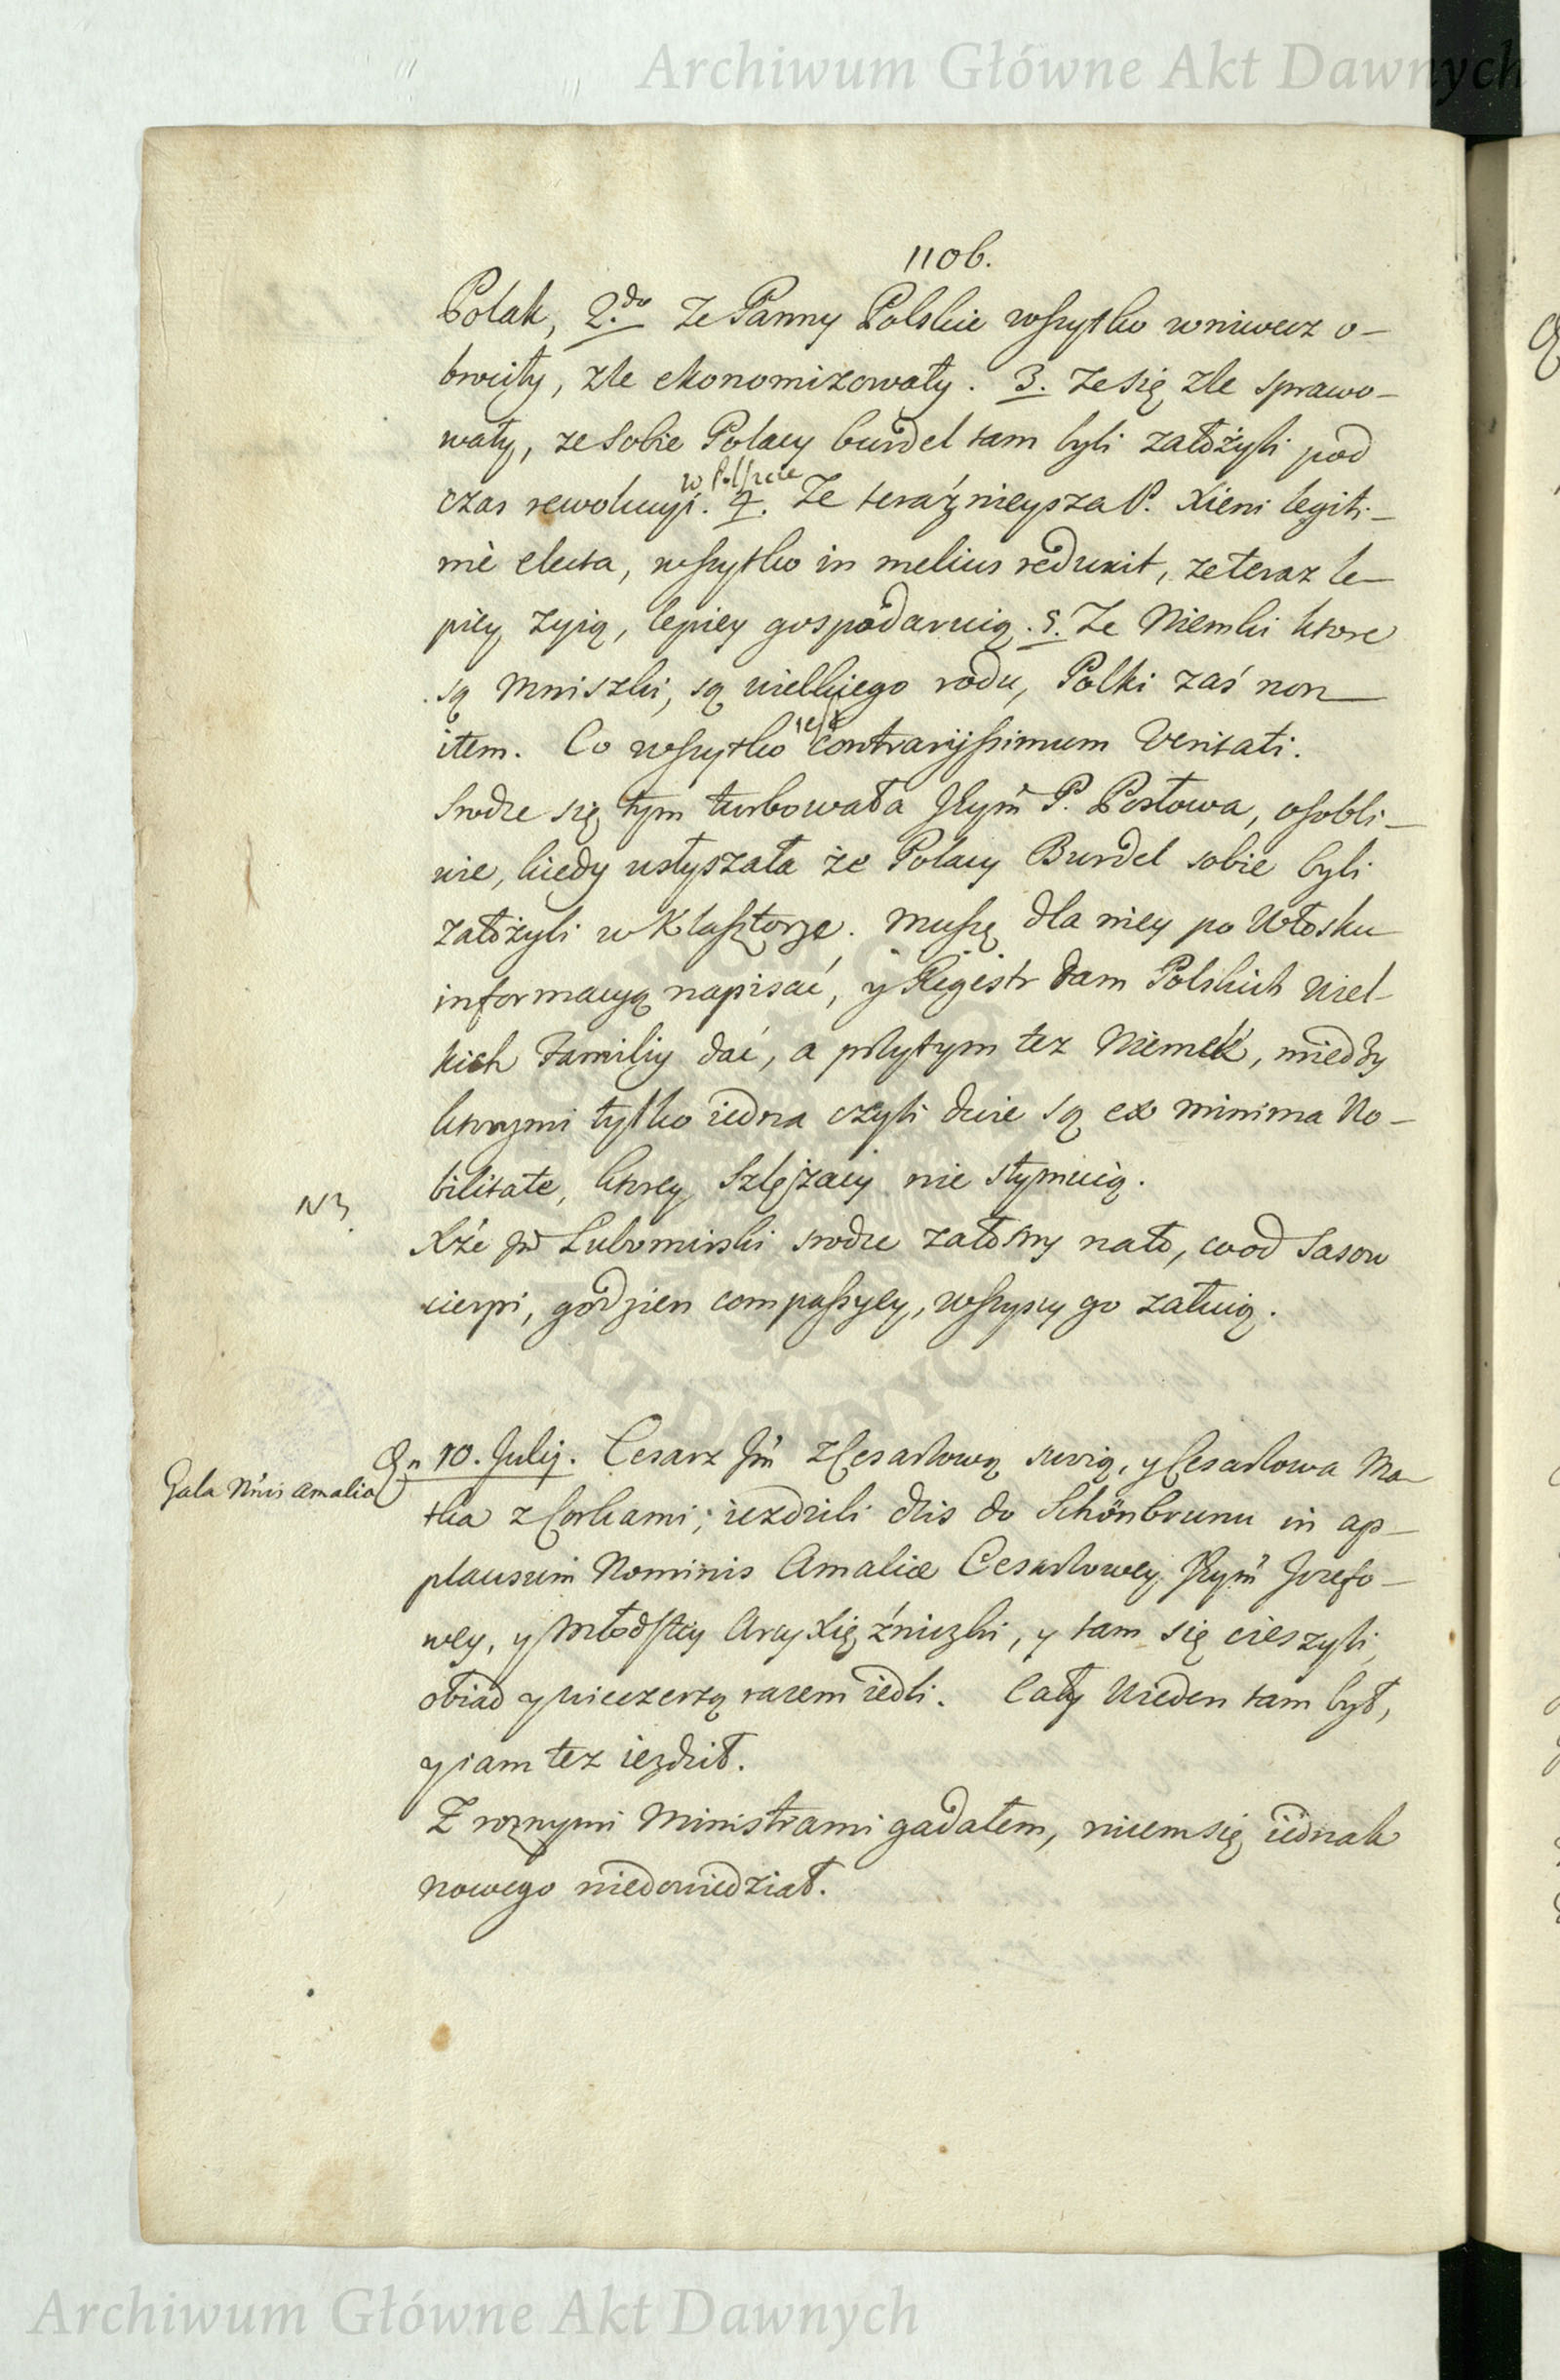 Archiwum Główne Akt Dawnych
1106.
Polak, 2.do Ze Panny Polskie wszytko wniwecz o-
brociły, zle ekonomizowały. 3. Ze się zle sprawo-
wały, ze sobie Polacy burdel tam byli założyli pod
czas rewolucyi w Polszcze. 4. Ze teraźnieysza P. Xieni legiti-
mè electa, wszytko in melius reduxit, ze teraz le-
piey zyią, lepiey gospodaruią. 5. Ze Niemki ktore
są Mniszki, są wielkiego rodu, Polki zaś non
item. Co wszytko iest contrarijssimum Veritati.
Srodze się tym turbowała JKym P. Posłowa, osobli-
wie, kiedy usłyszała że Polacy Burdel sobie byli
założyli w Klasztorze. Muszę dla niey po Włosku
informacyą napisać, y Regestr Dam Polskich Wiel-
kich Familiy dać, a przytym tez Niemek, miedzy
ktorymi tylko iedna czyli dwie są ex minima No-
bilitate, ktorey Szlęzacy nie słymuią.
NB.
Xże Jm Lubomirski srodze załosny nato, co od Sasow
cierpi, godzien compassyey, wszyscy go załuią.
Gala Nnis Amaliæ
Dn 10. Julij. Cesarz Jm z Cesarzową swoią, y Cesarzowa Ma-
tka z Corkami; iezdzili dzis do Schönbrunu in ap-
plausum Nominis Amaliæ Cesarzowey JKym Jozefo-
wey, y Młodszey Arcy Xiężniczki, y tam się cieszyli,
obiad y wieczerzą razem iedli. Cały Wieden tam był,
y iam tez iezdził.
Z roznymi Ministrami gadałem, niczem się iednak
nowego niedowiedział.
Archiwum Główne Akt Dawnych